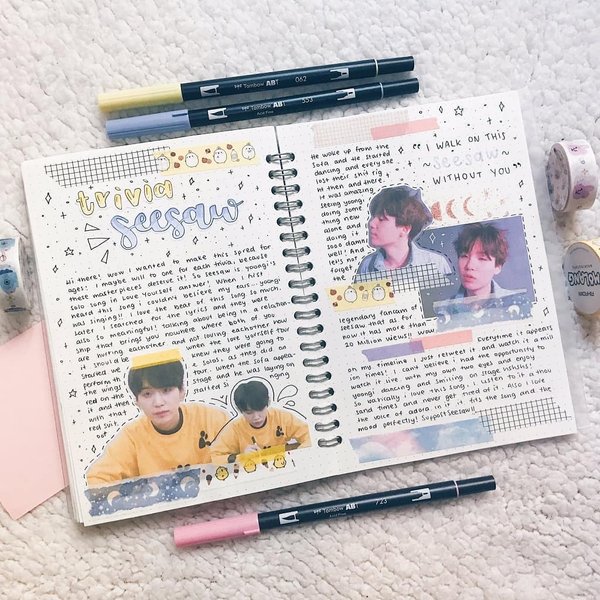 Tombow ABT 062
Tombow ABT 553
trivia
seesaw
Hi there! wow I wanted to make this spred for
ages! I maybe will to one for each trivia because
these masterpieces deserve it! So seesaw is yoongi's
solo song in Love Yourself answer! When I first
heard this song I couldn't believe my ears... yoongi
was singing!! I love the beat of this song so much
Later I searched for the lyrics and they were
also so meaningful! Talking about being in a relation-
ship that brings you nowhere where both of you
are hurting eachother and not loving eachother how
it should be.
Started
perform
the wings
red on the
it and then
with that
red suit
bof
When the love yourself tour
knew they were going to
solos, as they did on
tour. When the sofa appea-
stage and he was laying on
started si nging
He woke up from the
Sofa and He started
dancing and everyone
lost their shit rig
ht then and there.
it was amazing
seeing yoongi
doing some
thing new
alone and
doing it
sooo damn
well! And
let's not
forget
the
legendary fancam of
seesaw that as for
now it has more than
20 Million views!!
"I WALK ON THIS
~seesaw~
WITHOUT YOU"
Everytime it appears
on my timeline I just retweet it and watch it a mill
ion times! I can't believe I had the opportunity to
watch it live with my own two eyes and enjoy
yoongi dancing and smiling on stage
So basically, I love this song, I listen to it a thou
sand times and never get tired of it. Also I love
the voice of adora in it it fits the song and the
mood perfectly! Support Seesaw!!
Tombow ABT 723